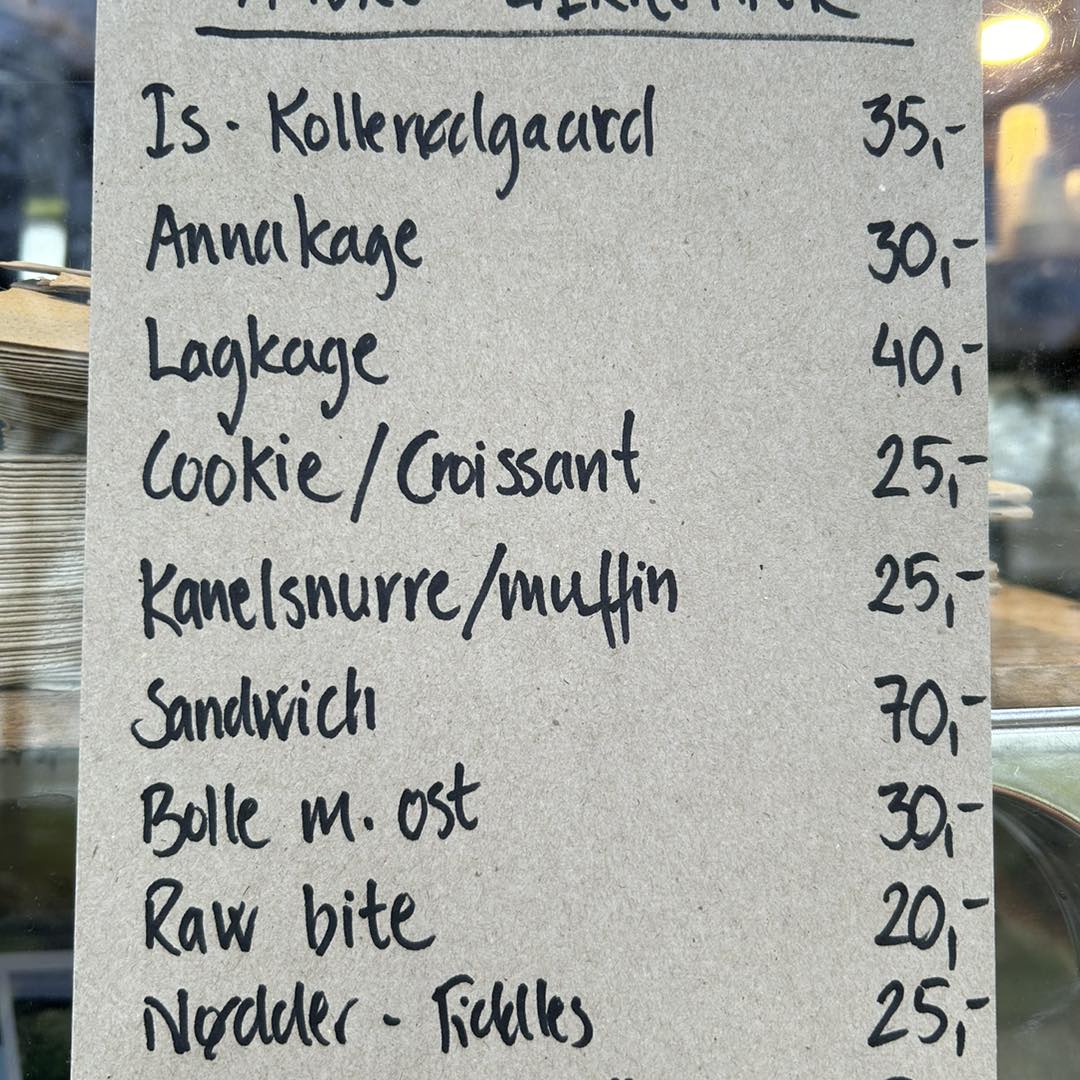 Is - Kollerødgaard 35,-
Annakage 30,-
Lagkage 40,-
Cookie / Croissant 25,-
Kanelsnurre / muffin 25,-
Sandwich 70,-
Bolle m. ost 30,-
Raw bite 20,-
Nødder - Fiddles 25,-